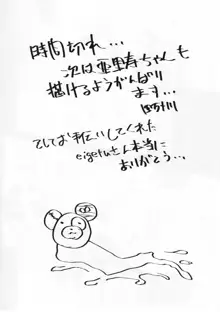 時間切れ…
次は亜里寿ちゃんも
描けるようがんばり
ます…
そしてお手伝いしてくれた
eigetuさん本当に
ありがとう…